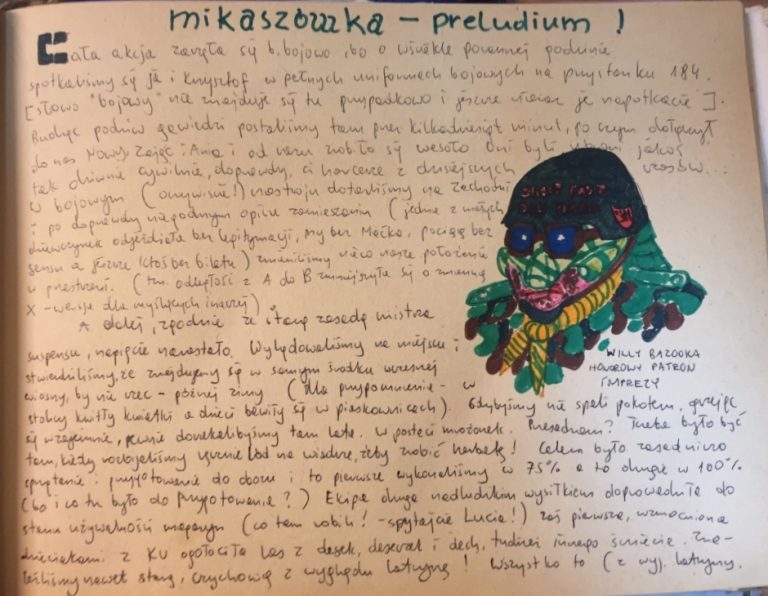 mikaszówka – preludium !
Cała akcja zaczęła się b. bojowo, bo o wściekle porannej godzinie
spotkaliśmy się ja i Krzysztof w pełnych uniformach bojowych na przystanku 184.
[słowo "bojowy" nie znajduje się tu przypadkowo i jeszcze nieraz je napotkacie].
Budząc podziw gawiedzi postaliśmy tam przez kilkadziesiąt minut, po czym dołączył
do nas Nowy, Zając i Ania i od razu zrobiło się wesoło. Oni byli ubrani jakoś
tak dziwnie cywilnie, doprawdy, ci harcerze z dzisiejszych czasów...
W bojowym (oczywiście!) nastroju dotarliśmy na Zachodni
i po doprawdy niegodnym opisu zamieszaniu (jedna z małych
dziewczynek odjeżdżała bez legitymacji, my bez Maćka, pociąg bez
sensu a jeszcze ktoś bez biletu) zmieniliśmy nieco nasze położenie
w przestrzeni. (tzn. odległość z A do B zmniejszyła się o zmienną
X – wersja dla myślących inaczej)
A dalej, zgodnie ze starą zasadą mistrza
suspensu, napięcie narastało. Wylądowaliśmy na miejscu i
stwierdziliśmy, że znajdujemy się w samym środku wczesnej
wiosny, by nie rzec – późnej zimy (dla przypomnienia – w
stolicy kwitły kwiatki a dzieci bawiły się w piaskownicach). Gdybyśmy nie spali pokotem, grzejąc
się wzajemnie, pewnie doczekalibyśmy tam lata. W postaci mrożonek. Przesadzam? Trzeba było być
tam, kiedy rozbijaliśmy ręcznie lód na wiadrze, żeby zrobić herbatę! Celem było zasadniczo
sprzątanie i przygotowanie do obozu i to pierwsze wykonaliśmy w 75% a to drugie w 100%
(bo i co tu było do przygotowania?) Ekipa druga nadludzkim wysiłkiem doprowadziła do
stanu używalności magazyn (co tam robili! – spytajcie Lucia!) zaś pierwsza, wzmocniona
dzieciakami z KU ogołociła las z desek, desek i dech, tudzież innego śmiecia. Zna-
leźliśmy nawet starą, czychową z wyglądu latrynę! Wszystko to (z wyj. latryny,
SHOOT FAST
DIE HARD
WILLY BAZOOKA
HONOROWY PATRON
IMPREZY